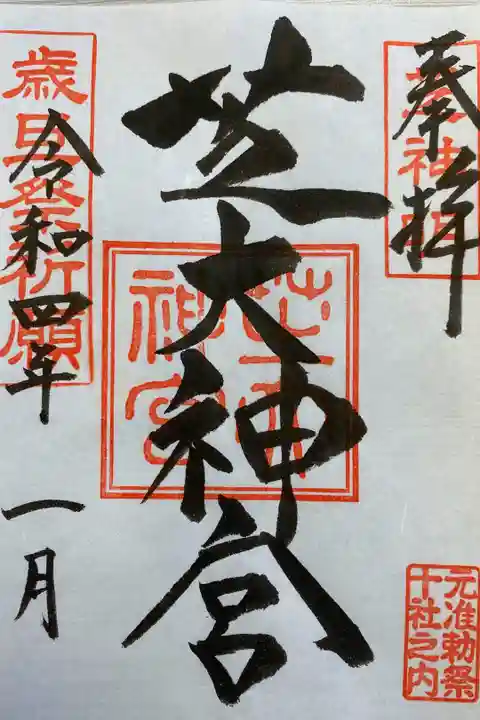 奉拝
芝大神宮
芝大神宮
元准勅祭
十社之内
歳旦祭祈願
令和四年
一月